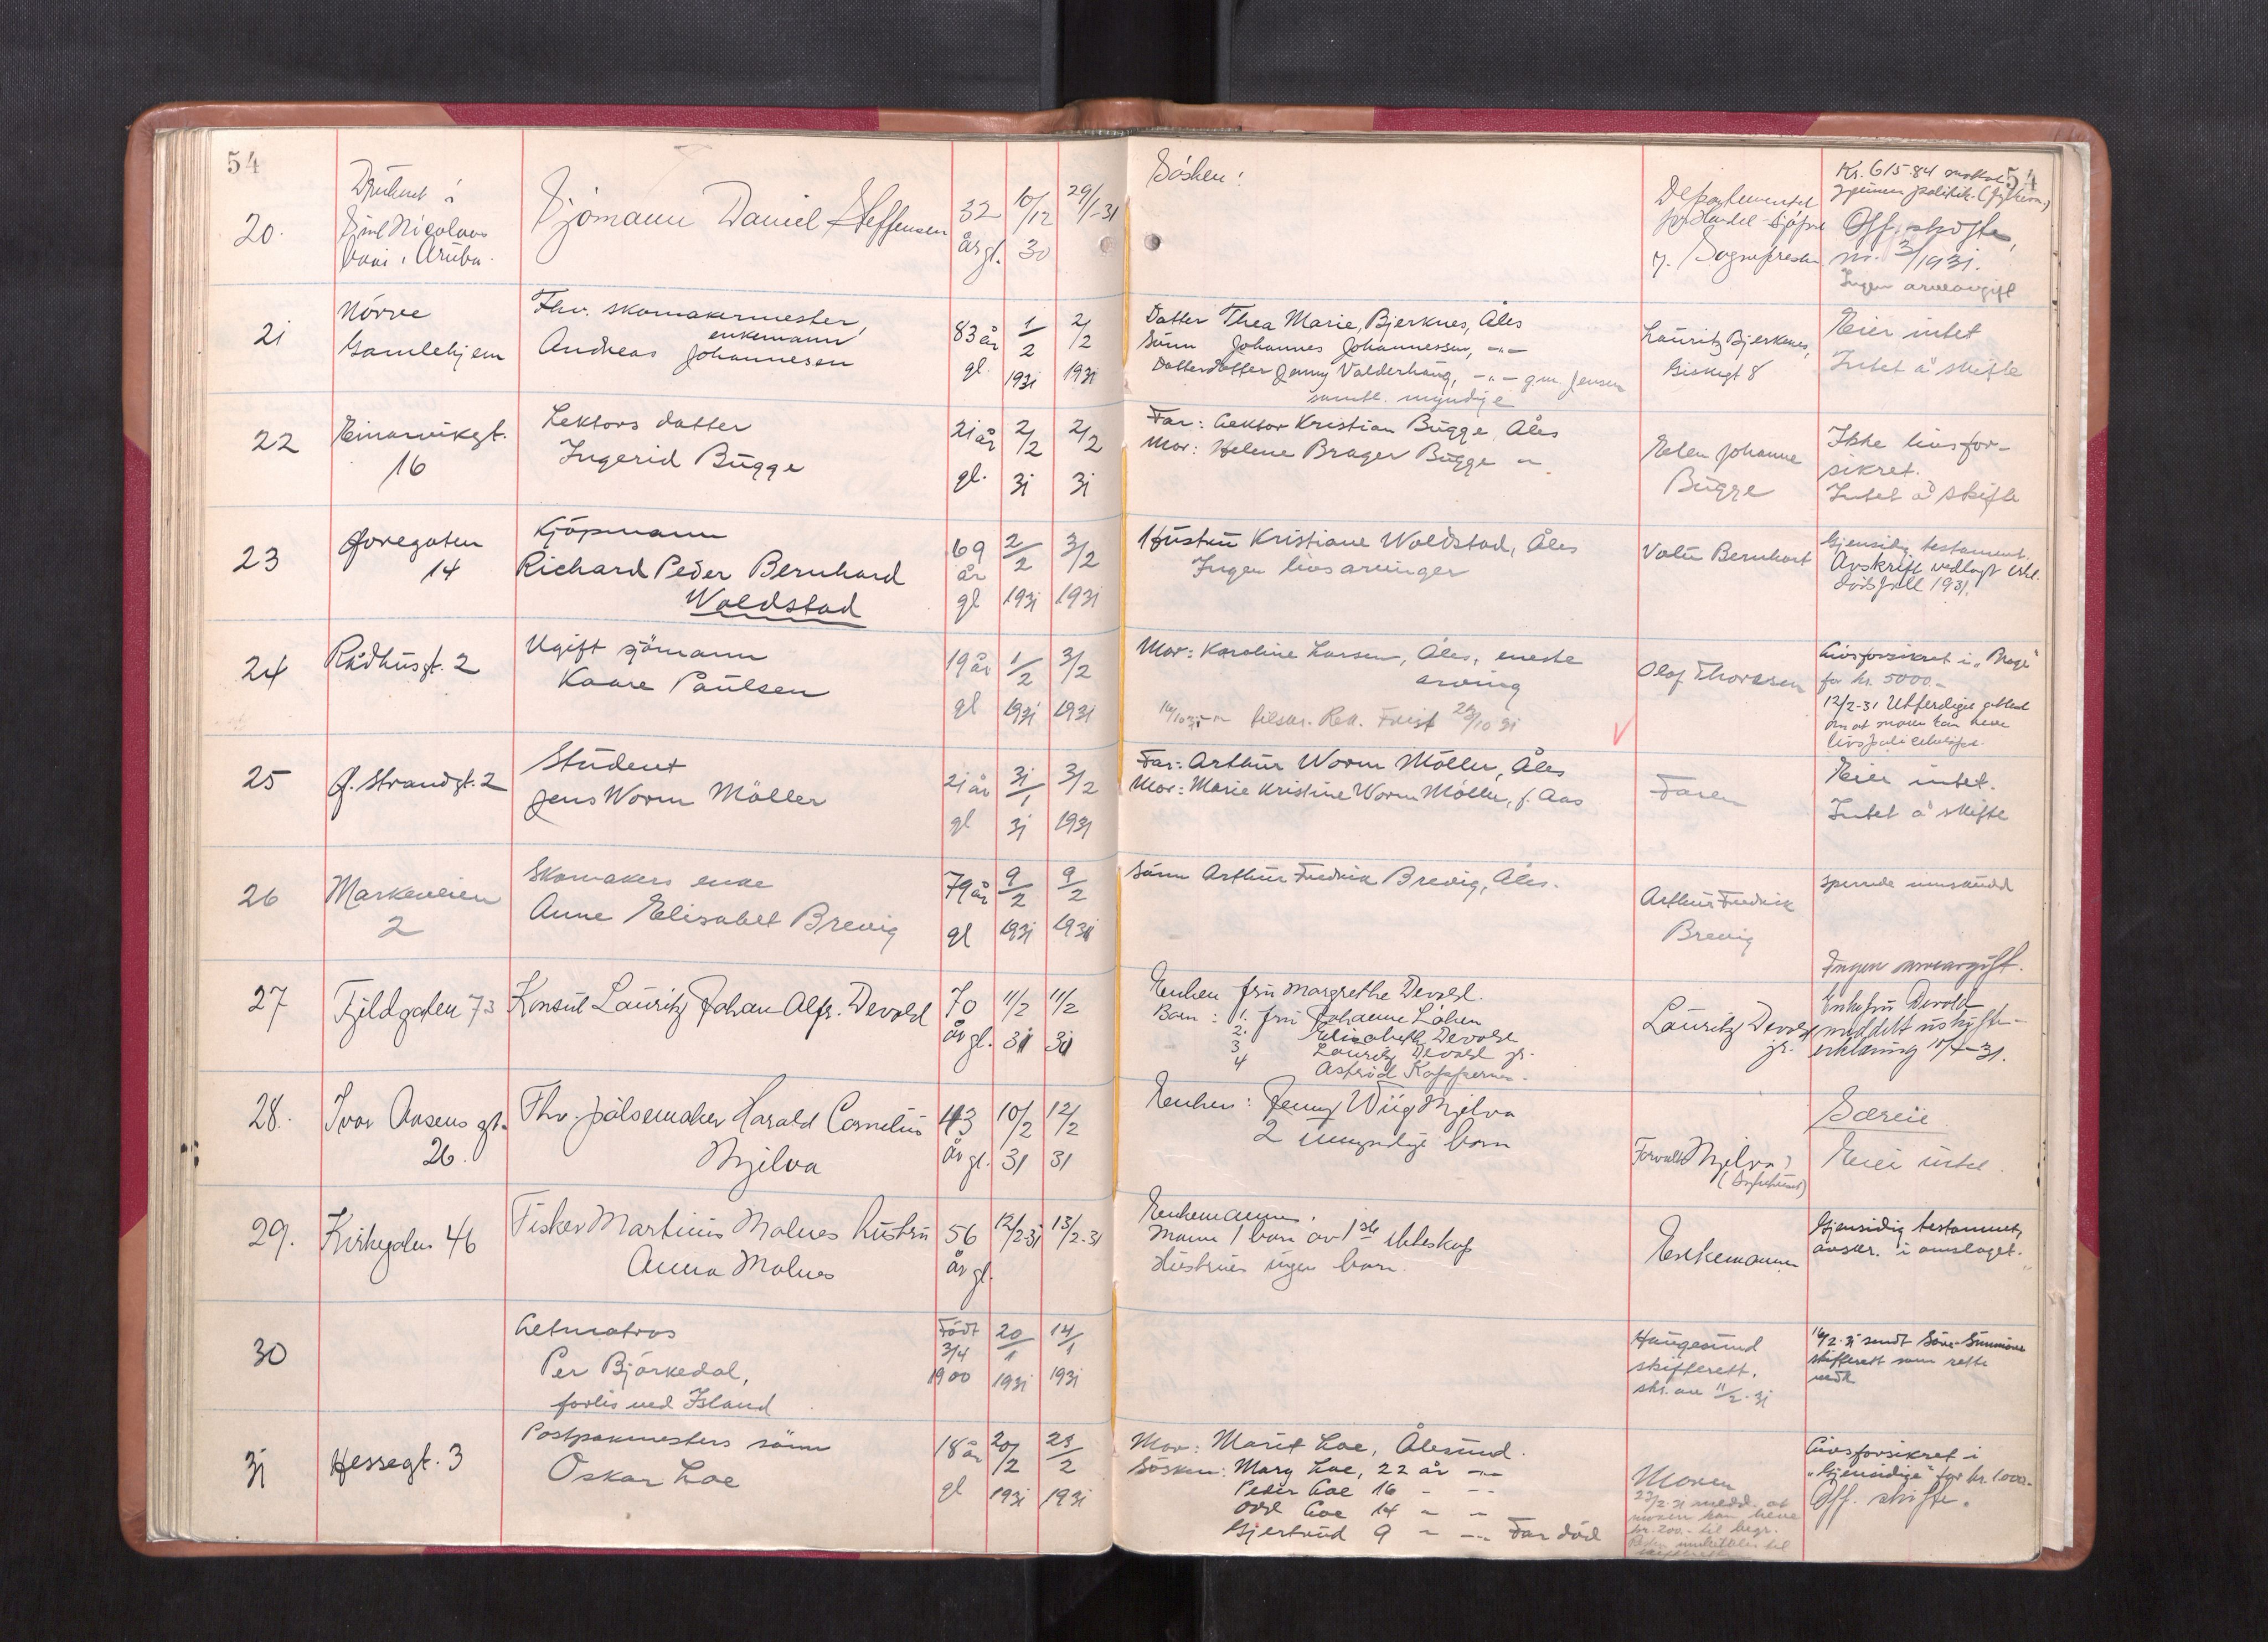 54
54
20.
Druknet i
Sint Nicolaas
Baai i Aruba.
Sjömann Daniel Steffensen
32
år gl.
10/12
30
29/1-31
Sösken:
Departementet
for Handel - Sjöfart
Kr. 615-84
Off. skifte,
nr. 3/1931.
Ingen arveavgift
21
Nörve
Gamlehjem
Fhv. skomakermester,
enkemann
Andreas Johannesen
83 år
gl.
1/2
1931
2/2
1931
Datter Thea Marie, Bjerknes, Åles
Sönn Johannes Johannessen, -"-
Datterdatter Jenny Valderhaug, -"- g.m. Jensen
samtl. myndige
Lauritz Bjerkenes,
Giskegt 8
Eier intet
Intet å skifte
22
Einarvikgt.
16
Lektors datter
Ingerid Bugge
21 år
gl.
2/2
31
2/2
31
Far: Lektor Kristian Bugge, Åles
Mor: Helene Brager Bugge -"-
Helen Johanne
Bugge
Ikke livsfor-
sikret.
Intet å skifte
23
Övregaten
14
Kjöpmann
Richard Peder Bernhard
Waldstad
69
år
gl
2/2
1931
3/2
1931
Hustru Kristiane Waldstad, Åles
Ingen livsarvinger
Valu Bernhart
Gjensidig testament.
Avskrift vedlagt erkl.
dödsfall 1931.
24
Rådhusgt. 2
Ugift sjömann
Kaare Paulsen
19 år
gl
1/2
1931
3/2
1931
Mor: Karoline Larsen, Åles, eneste
arving
Olaf Thoresen
Livsforsikret i "Brage"
for kr. 5000.-
12/2-31 Utferdiget attest
om at moren kan heve
25
Ö. Strandgt. 2
Student
Jens Worm Möller
21 år
gl
31/1
31
3/2
1931
Far: Arthur Worm Möller, Åles
Mor: Marie Kristine Worm Möller, f. Aas
Faren
Eier intet.
Intet å skifte
26
Markeveien
2
Skomakers enke
Anne Elisabet Brevig
79 år
gl
9/2
1931
9/2
1931
Sönn Arthur Fredrik Brevig, Åles.
Arthur Fredrik
Brevig
Ingen arveavgift.
27
Fjeldgaten 73
Konsul Lauritz Johan Alfr. Devold
70
år gl.
11/2
31
11/2
31
Enken fru Margrethe Devold.
Barn: 1. fru Johanne Löken
2. Elisabeth Devold
3 Lauritz Devold jr.
4 Astrid Koppernes.
Lauritz Devold
jr.
Enkefru Devold
meddelt uskifte-
erklæring 10/4-31.
28.
Ivar Aasens gt.
26.
Fhv. pölsemaker Harald Cornelius
Mjelva
43
år gl.
10/2
31
12/2
31
Enken: Jenny Wiig Mjelva
2 umyndige barn
Forvalt. Mjelva
Særeie
Eier intet.
29.
Kirkegaten 46
Fisker Martinus Molnes hustru
Anna Molnes
56
år gl.
12/2-31
13/2-31
Enkemannen.
Mann 1 barn av 1ste ekteskap
Hustruen ingen barn.
Enkemannen
Gjensidig testament,
avskr. i omslaget.
30
Letmatros
Per Björkedal,
forlis ved Island
Född
3/4
1900
20/1
1931
14/1
1931
Haugesund
skifterett.
skr. av 11/2-31
16/2-31 sendt Söre Sunnmöre
skifterett som rette
vedk.
31
Hessegt. 3
Postpakmesters sönn
Oskar Loe
18 år
gl
20/2
1931
23/2
1931
Mor: Marit Loe, Ålesund.
Sösken: Mary Loe, 22 år -"-
Peder Loe 16 - -"-
Odd Loe 14 - -
Gjertrud 9 - -"- Far död
Moren
23/2-31 medd. at
moren kan heve
kr. 200.- til begr.
Livsforsikret i
"Gjensidige" for kr. 1000.-
Off. skifte.